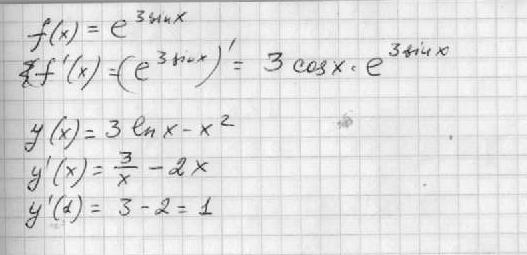 f(x) = e^{3 sin x}
f'(x) = (e^{3 sin x})' = 3 cos x · e^{3 sin x}
y(x) = 3 ln x - x^2
y'(x) = 3/x - 2x
y'(1) = 3 - 2 = 1